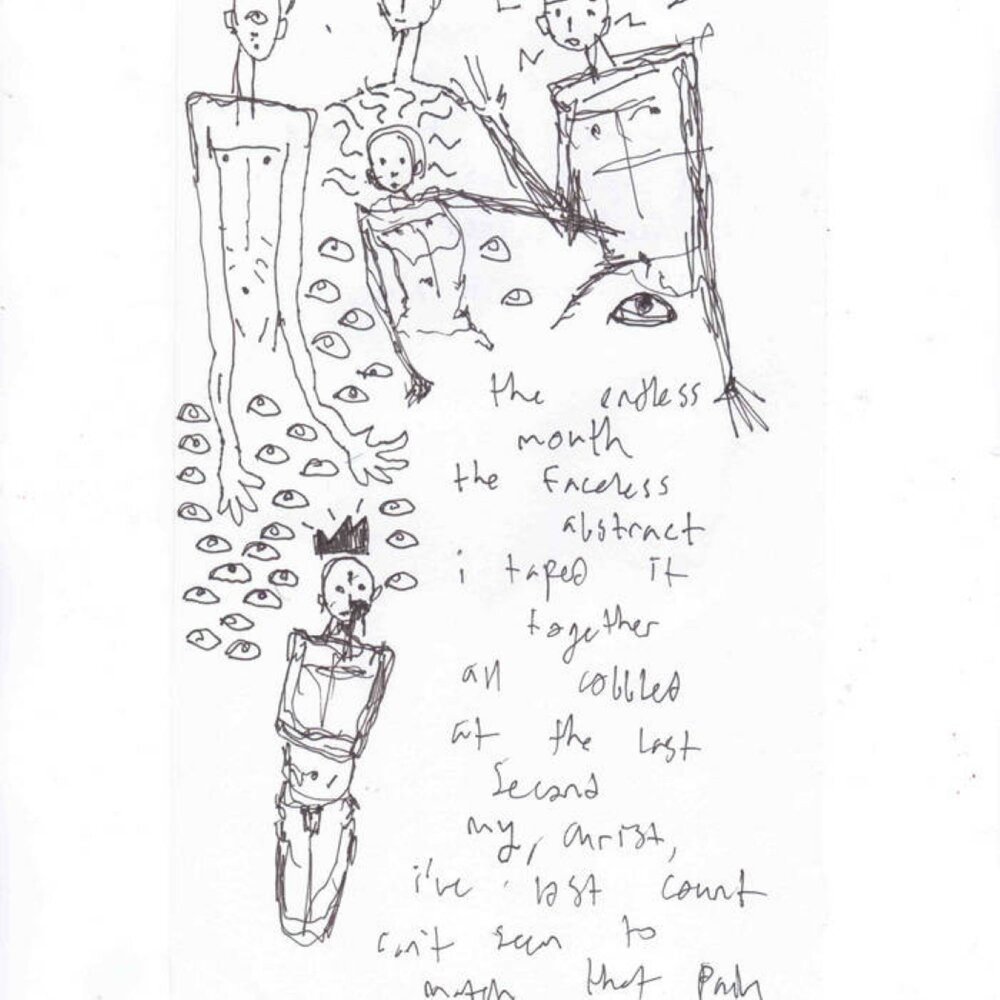 the endless
month
the faceless
abstract
i taped it
together
all cobbled
at the last
second
my, christ,
i've lost count
can't seem to
match that pain